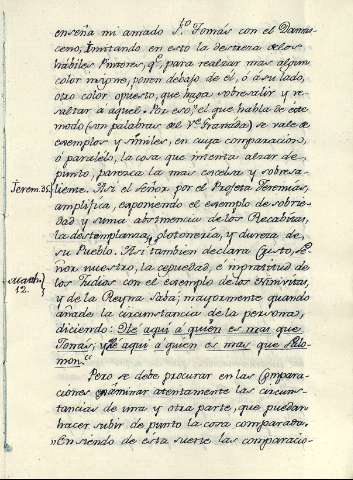 enseña mi amado S.to Tomás con el Damas-
ceno, Imitando en esto la destreza de los
hábiles Pintores, q.e para realzar mas algun
color insigne, ponen debajo de él, ó a su lado,
otro color opuesto, que haga sobresalir y re-
saltar à aquel. Por eso, el que habla de este
modo (son palabras del V.e Granada) se vale de
exemplos y símiles, en cuya comparacion,
ó paralelo, la cosa que intenta alzar de
punto, parezca la mas excelsa y sobresa-
Jerem. 35. liente. Así el Señor por el Profeta Jeremías,
amplifica, exponiendo el exemplo de sobrie-
dad y suma abstinencia de los Recabitas,
la destemplanza, glotonería, y dureza de
su Pueblo. Asi tambien declara Cristo, Se-
Matth. 12. ñor nuestro, la ceguedad, e ingratitud de
los Judios con el exemplo de los Ninivitas,
y de la Reyna Sabá; mayormente quando
añade la circunstancia de la persona,
diciendo: Hé aquí à quien es mas que
Jonas; y hé aquí à quien es mas que Salo-
mon."
Pero se debe procurar en las Compara-
ciones examinar atentamente las circuns-
tancias de una y otra parte, que puedan
hacer subir de punto la cosa comparada.
"En siendo de esta suerte las comparacio-